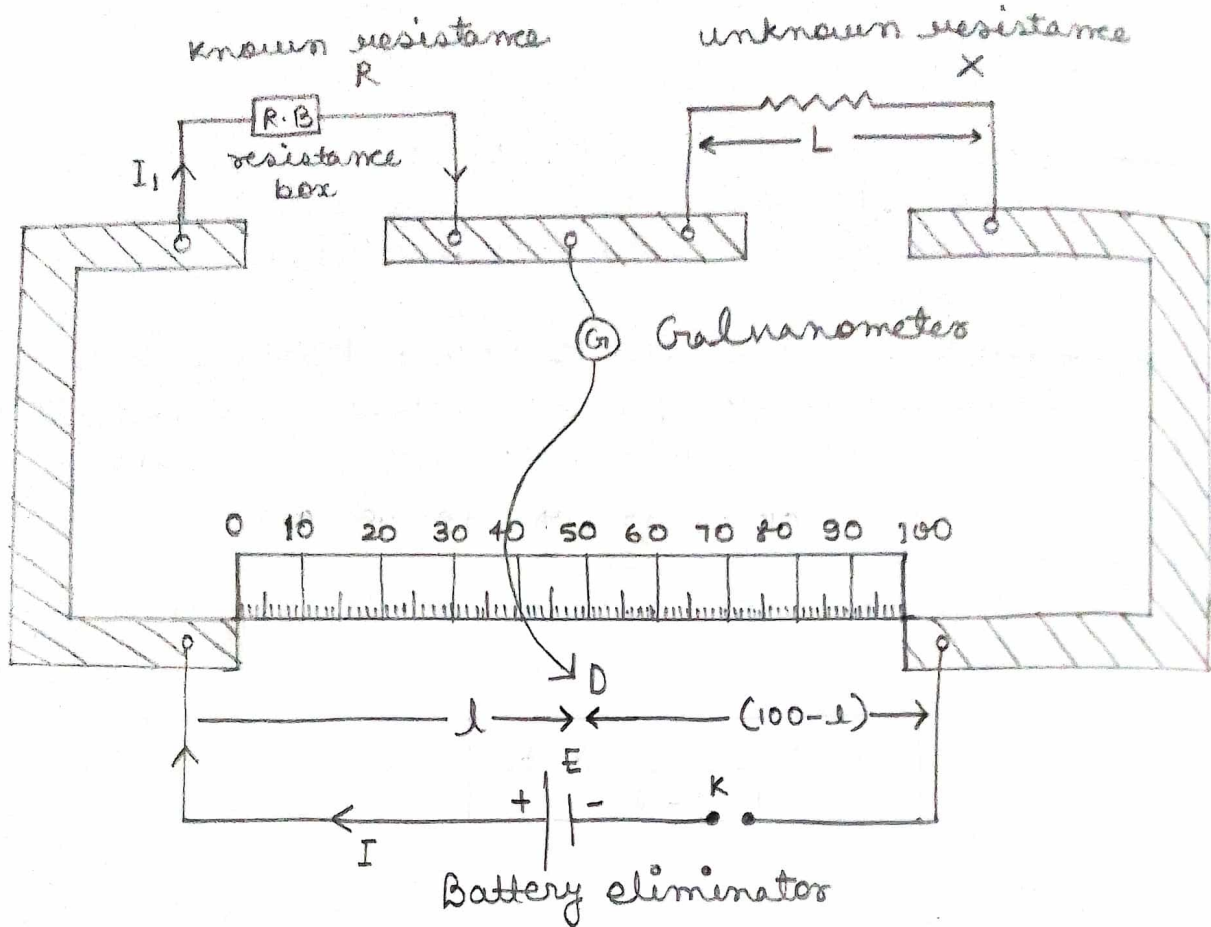 known resistance
R
unknown resistance
X
R.B
resistance
box
I₁
L
G
Galvanometer
0 10 20 30 40 50 60 70 80 90 100
D
l
(100-l)
E
+
-
K
I
Battery eliminator